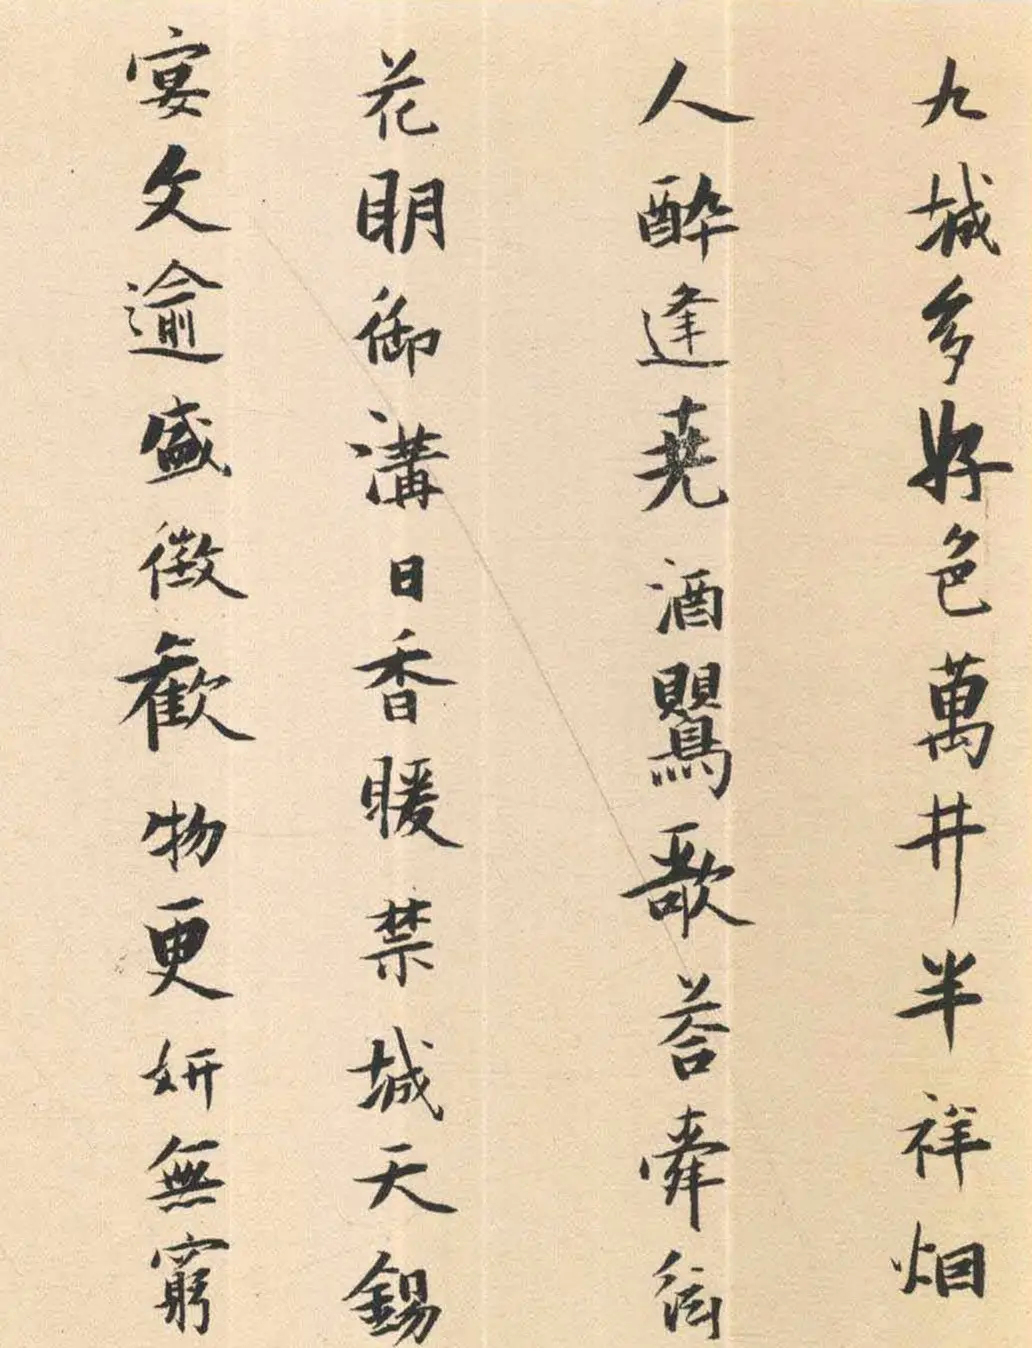 九城多好色萬井半祥烟
人醉逢堯酒鸎歌荅舜絃
花明御溝日香暖禁城天錫
宴文逾盛徵歡物更妍無窮